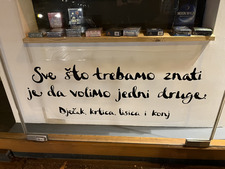 Sve što trebamo znati
je da volimo jedni druge.
Dječak, krtica, lisica i konj